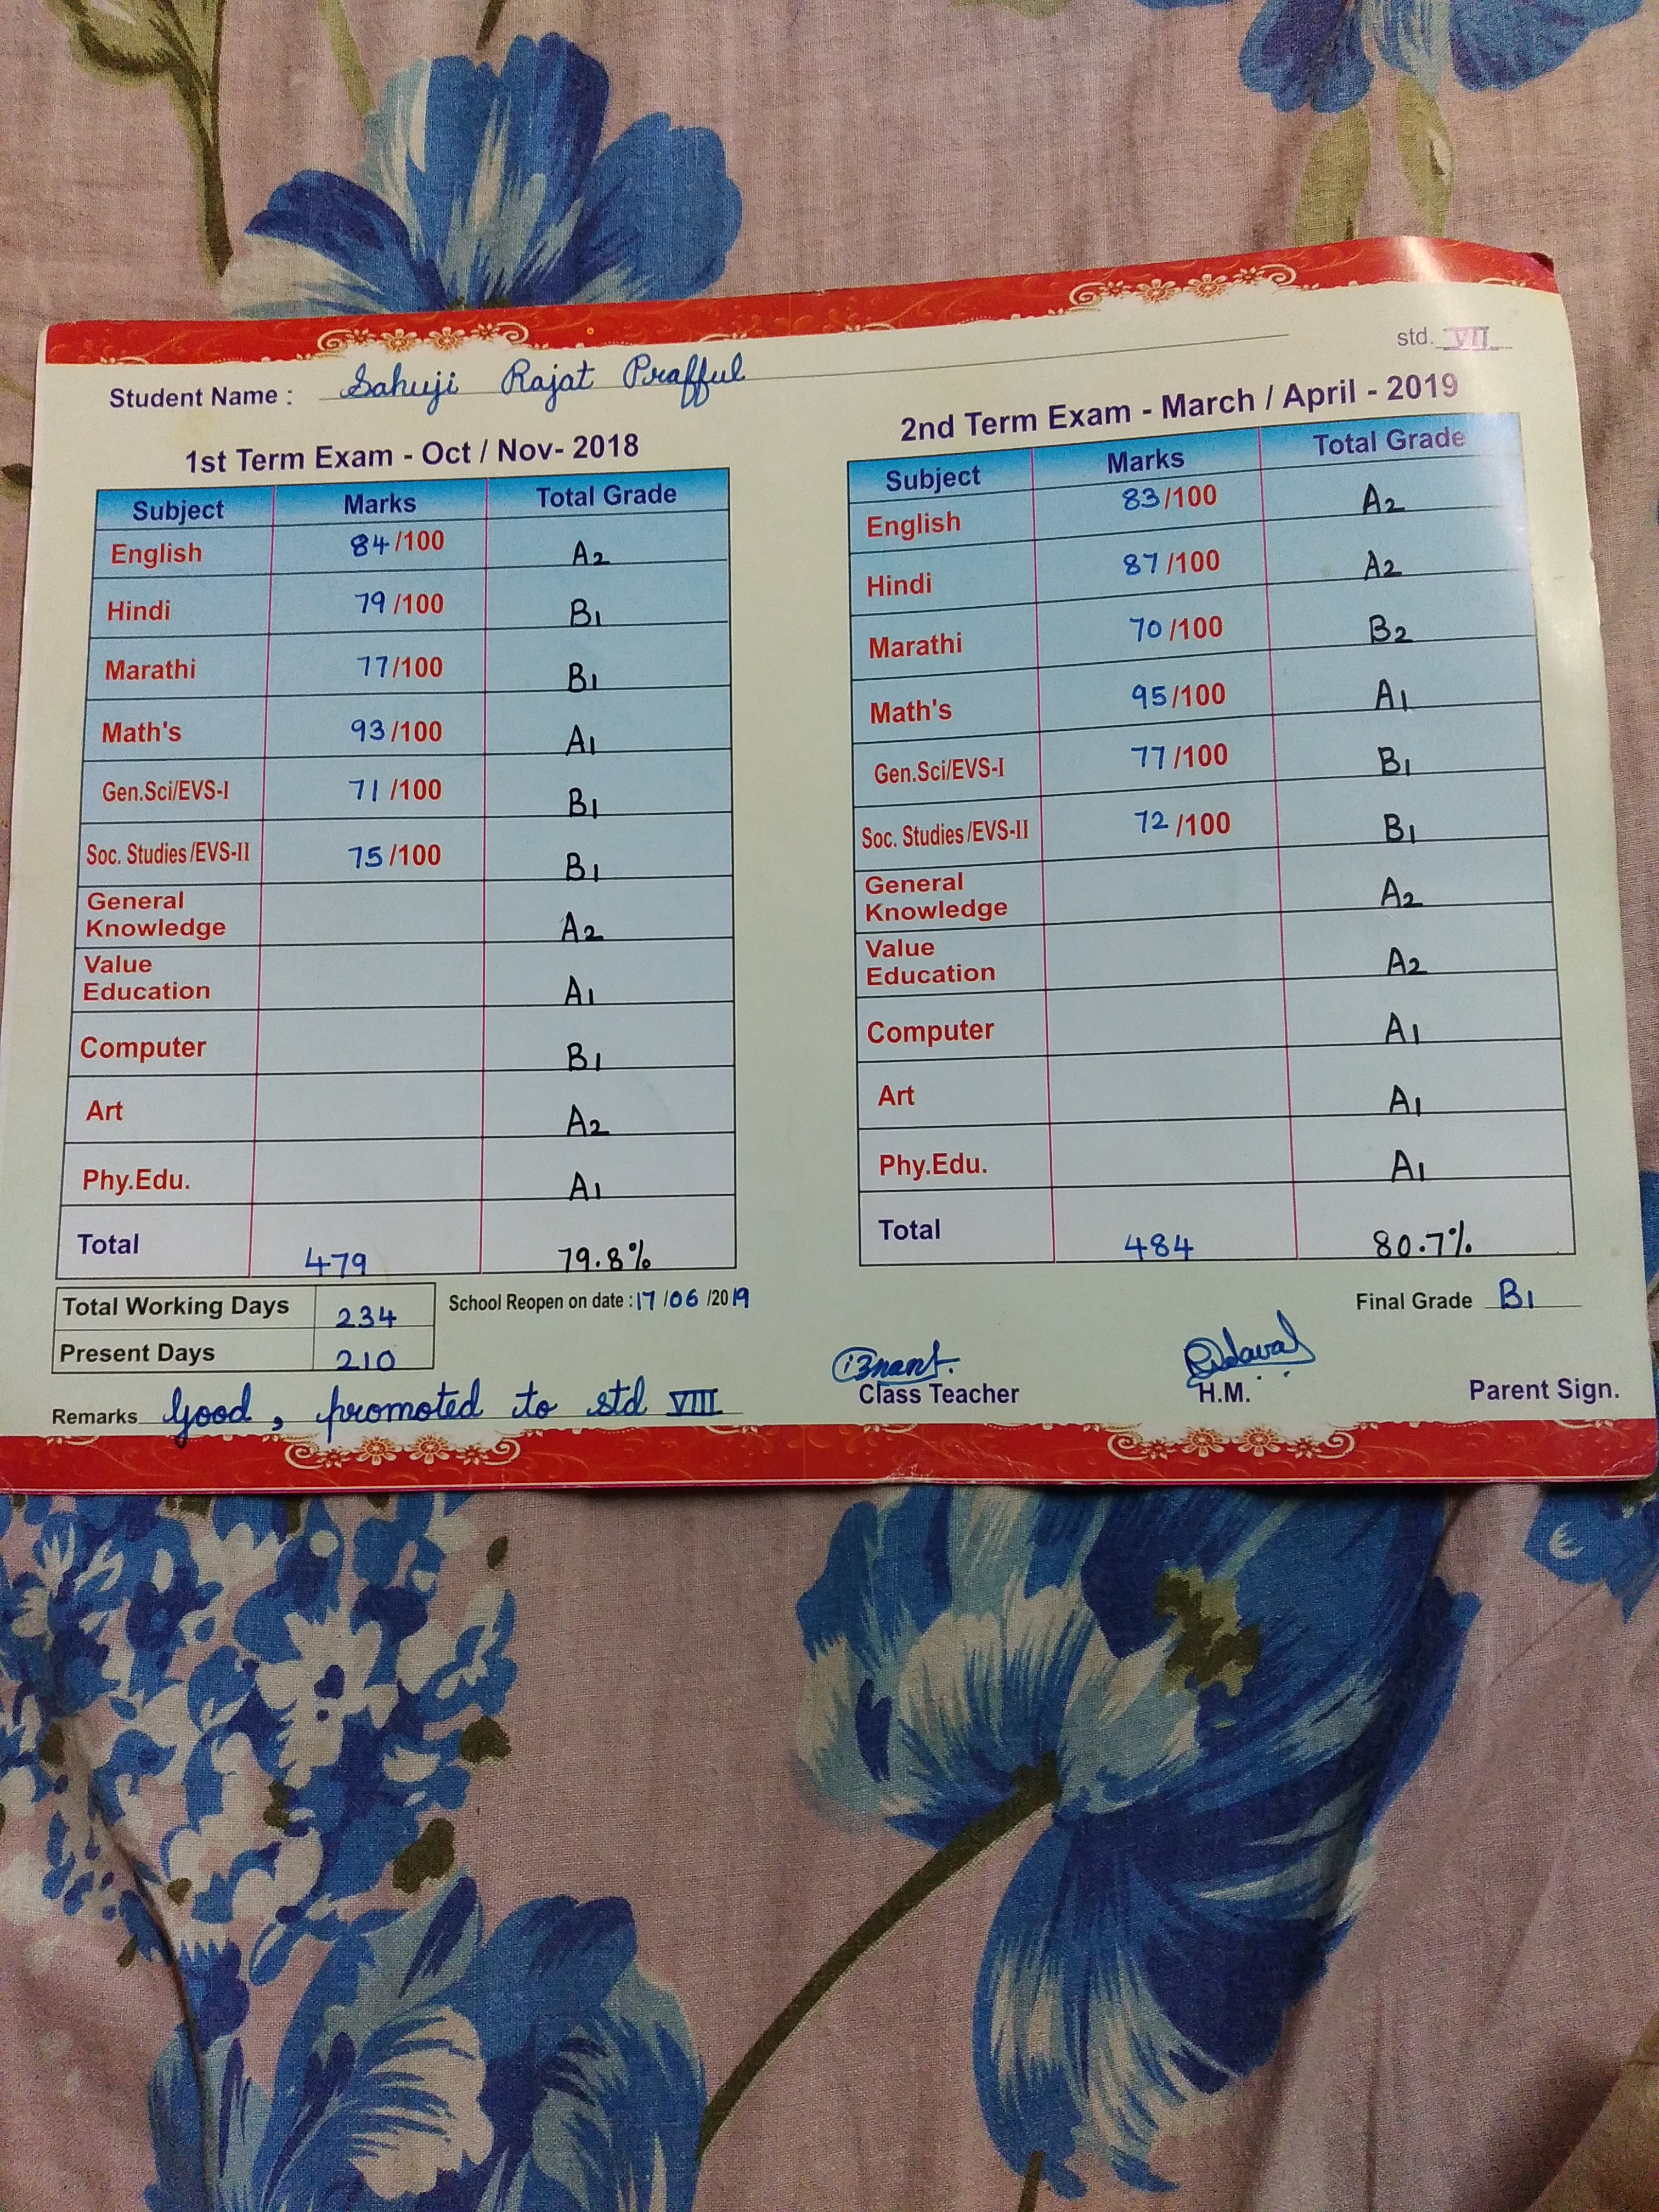 std. VII
Student Name : Sahuji Rajat Prafful
1st Term Exam - Oct / Nov- 2018
Subject Marks Total Grade
English 84/100 A2
Hindi 79/100 B1
Marathi 77/100 B1
Math's 93/100 A1
Gen.Sci/EVS-I 71/100 B1
Soc. Studies/EVS-II 75/100 B1
General
Knowledge A2
Value
Education A1
Computer B1
Art A2
Phy.Edu. A1
Total 479 79.8%
Total Working Days 234
Present Days 210
School Reopen on date : 17/06/2019
Remarks Good, promoted to std VIII
2nd Term Exam - March / April - 2019
Subject Marks Total Grade
English 83/100 A2
Hindi 87/100 A2
Marathi 70/100 B2
Math's 95/100 A1
Gen.Sci/EVS-I 77/100 B1
Soc. Studies/EVS-II 72/100 B1
General
Knowledge A2
Value
Education A2
Computer A1
Art A1
Phy.Edu. A1
Total 484 80.7%
Final Grade B1
Class Teacher H.M. Parent Sign.